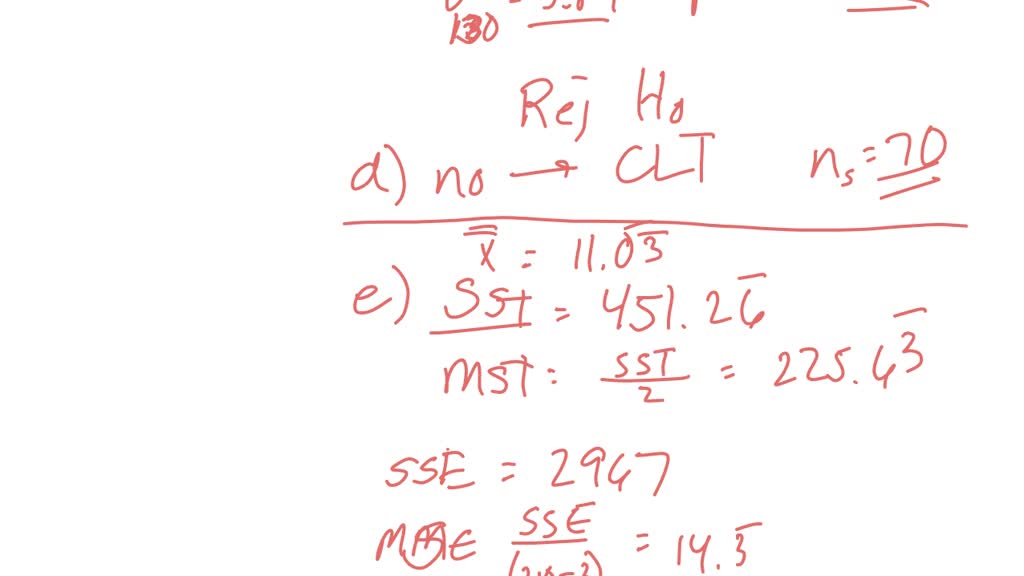 130
Rej H₀
d) no → CLT nₛ = 70
x̿ = 11.03̅
e) SST = 451.26̅
MST: SST/2 = 225.63̅
SSE = 2967
SSE/(210-3) = 14.3̅